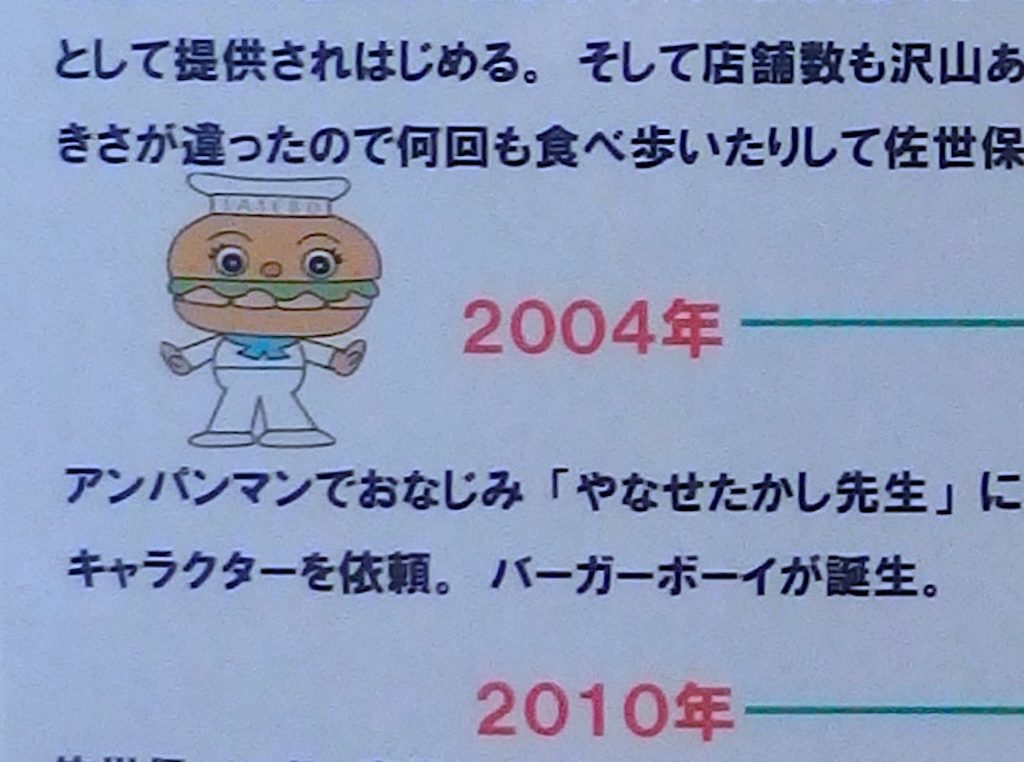 として提供されはじめる。 そして店舗数も沢山あ
きさが違ったので何回も食べ歩いたりして佐世保
SASEBO
2004年
アンパンマンでおなじみ「やなせたかし先生」に
キャラクターを依頼。 バーガーボーイが誕生。
2010年